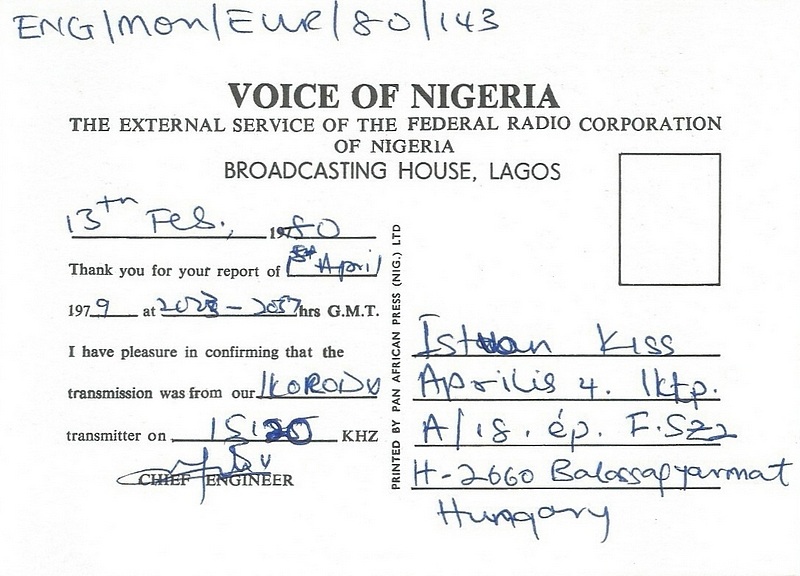 ENG/MON/EUR/80/143
VOICE OF NIGERIA
THE EXTERNAL SERVICE OF THE FEDERAL RADIO CORPORATION
OF NIGERIA
BROADCASTING HOUSE, LAGOS
13th Feb., 1980
Thank you for your report of 1st April
1979 at - 2057 hrs G.M.T.
I have pleasure in confirming that the
transmission was from our IKORODU
transmitter on 15120 KHZ
CHIEF ENGINEER
PRINTED BY PAN AFRICAN PRESS (NIG.) LTD
Istvan Kiss
Aprilis 4. lktp.
A/18. ép. F.SZ2
H-2660 Balassapyarmat
Hungary